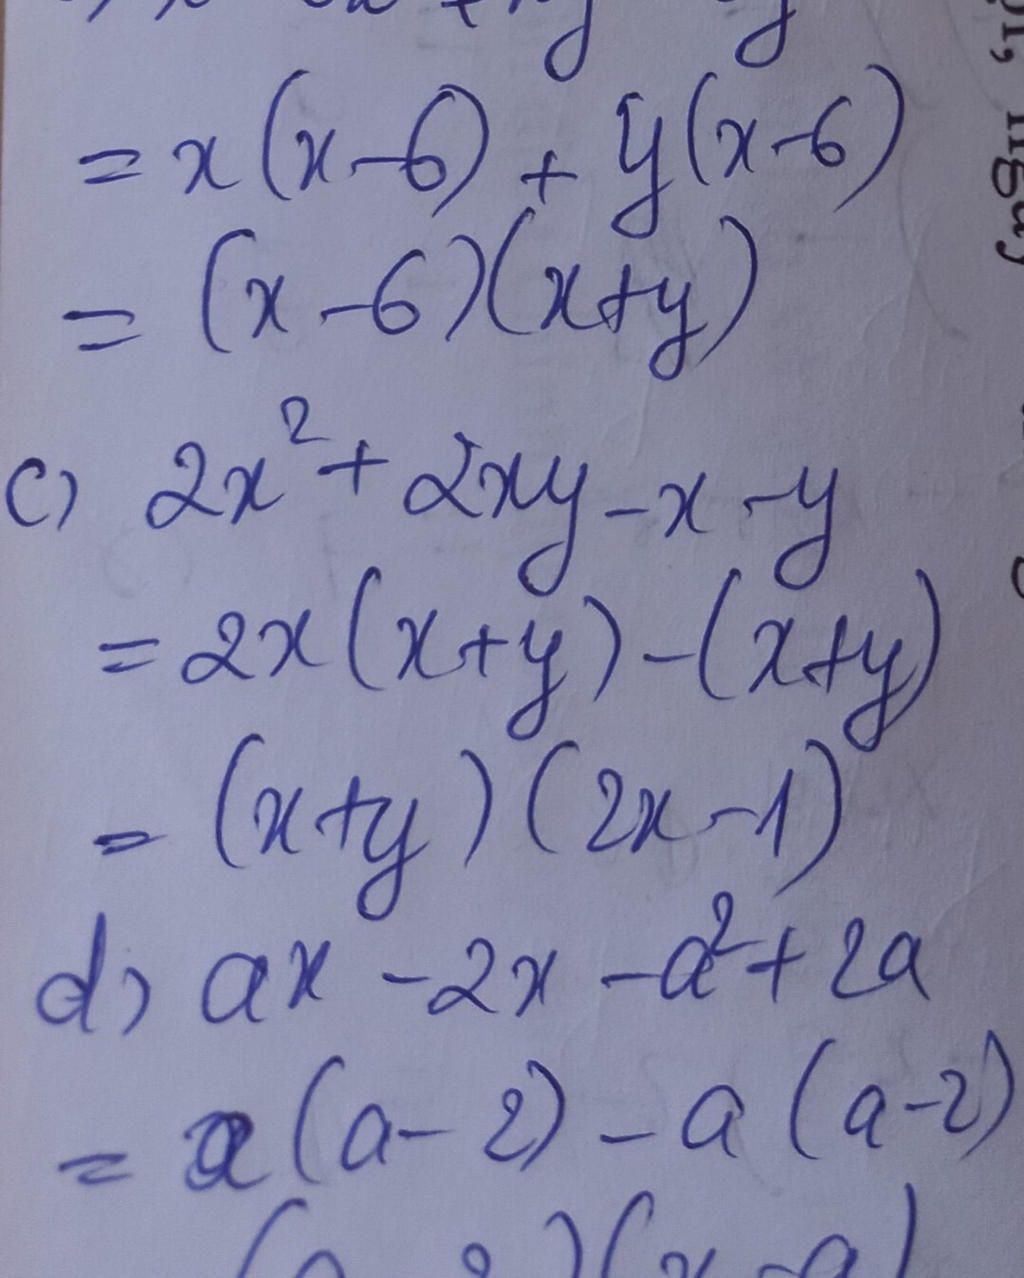 = x(x-6) + y(x-6)
= (x-6)(x+y)
c) 2x² + 2xy - x - y
= 2x(x+y) - (x+y)
= (x+y)(2x-1)
d) ax - 2x - a² + 2a
= x(a-2) - a(a-2)